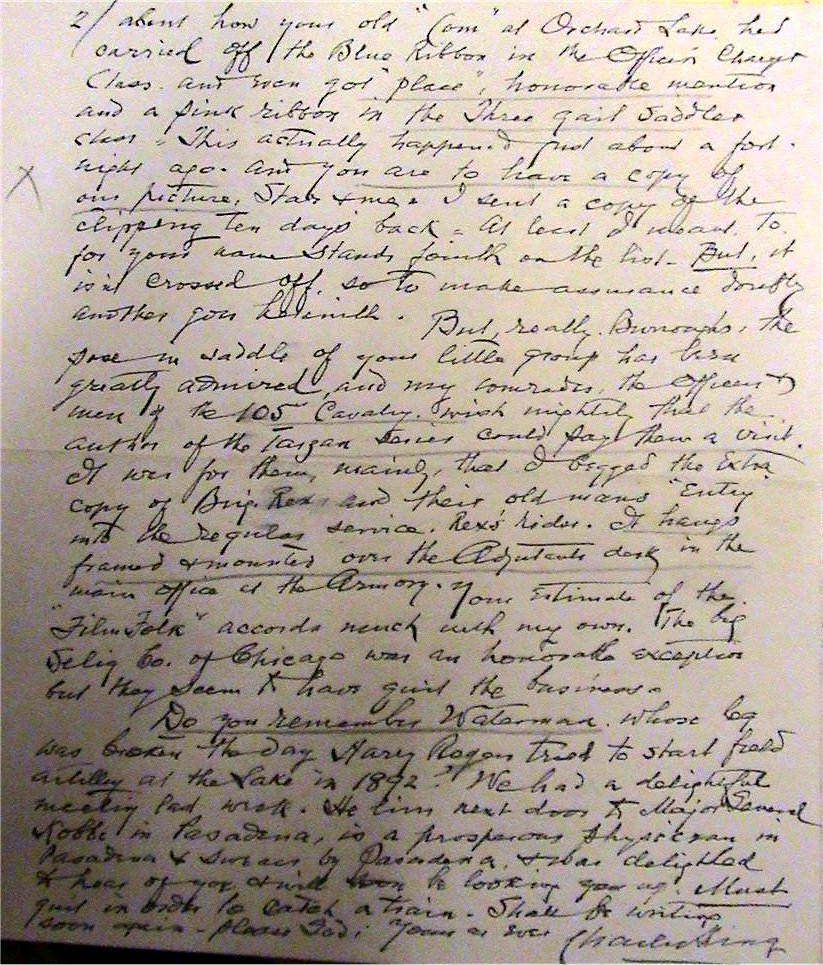 2/ about how your old "Com" at Orchard Lake had
carried off the Blue Ribbon in the Officers Charger
Class. and even got "place", honorable mention
and a pink ribbon in the Three gait Saddler
class = This actually happened just about a fort-
night ago. and you are to have a copy of
X our picture, Star & me. I sent a copy of the
clipping ten days back = At least I meant to.
for your name stands fourth on the list. But, it
isn't crossed off. so to make assurance doubly
another goes herewith.
But, really. Burroughs, the
pose in saddle of your little group has been
greatly admired, and my comrades, the Officers &
men of the 105 Cavalry. wish mightily that the
author of the Tarzan series could pay them a visit.
It was for them, mainly, that I begged the extra
copy of Brig. Rex and their old mans "Entry
into the regular service. Rex's rider. It hangs
framed & mounted over the Adjutants desk in the
main office at the Armory. Your estimate of the
"Film Folk" accords much with my own. The big
Selig Co. of Chicago was an honorable exception
but they seem to have quit the business.
Do you remember Waterman. whose leg
was broken the day Harry Rogers tried to start field
artillery at the Lake in 1892? We had a delightful
meeting last week. He lives next door to Major General
Kobbe in Pasadena, is a prosperous physician in
Pasadena & swears by Pasadena, & was delighted
to hear of you & will be looking you up. Must
quit in order to catch a train. Shall be writing
soon again - please God; Yours as ever Charles King